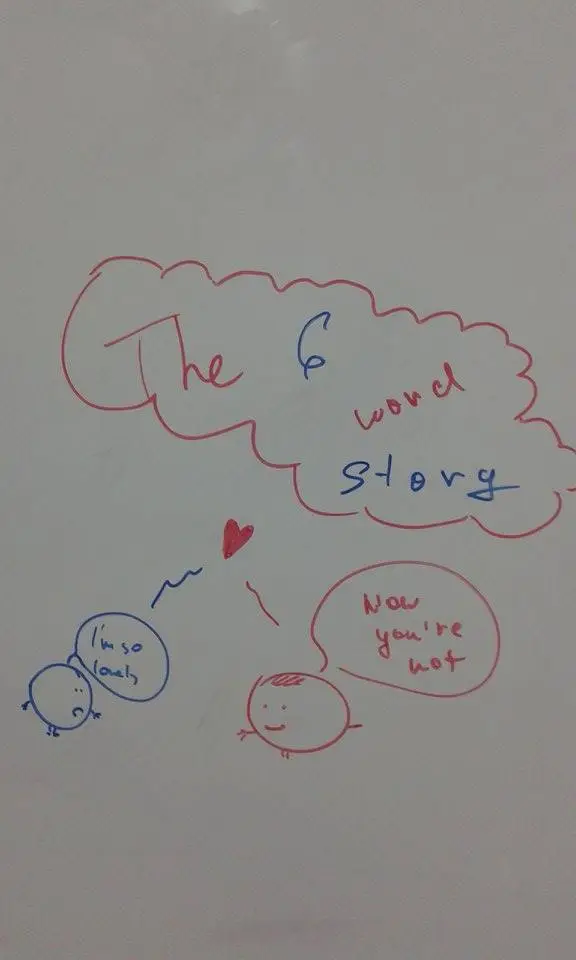 The 6
word
story
I'm so
lonely
Now
you're
not